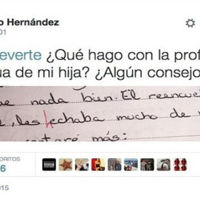 o Hernández
01
everte ¿Qué hago con la prof
ua de mi hija? ¿Algún consejo
nada bien. El reencue
les echaba mucho de
más:
ORITOS
6
015